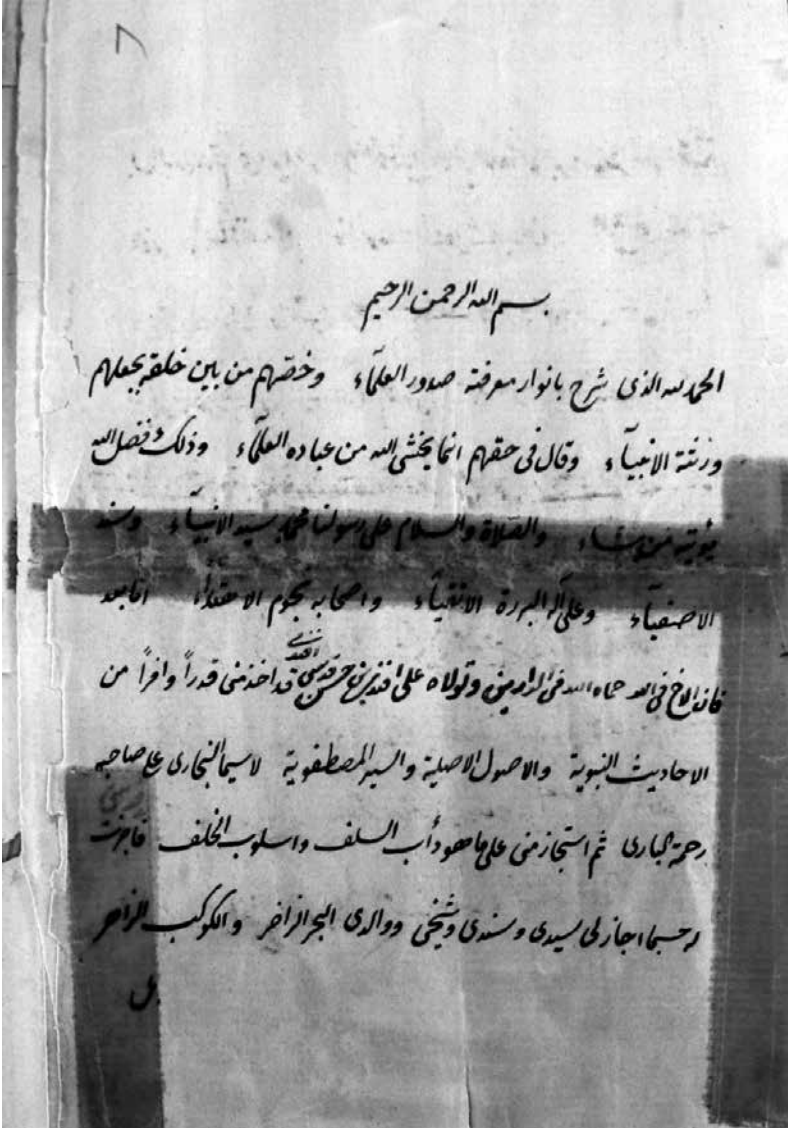 ٨
بسم الله الرحمن الرحيم
الحمد لله الذى شرح بانوار معرفته صدور العلمآء وخصّهم من بين خلقه بجعلهم
ورثة الانبيآء وقال فى حقهم انما يخشى الله من عباده العلمآء وذلك فضل الله
يؤتيه من يشاء والصّلاة والسلام على رسولنا محمد سيد الانبيآء وسند
الاصفيآء وعلى آله البررة الاتقيآء واصحابه نجوم الاهتداء امّا بعد
فان الاخ فى الله حماه الله فى الدارين وتولاه على افندى بن حسن افندى قد اخذ منى قدراً وافراً من
الاحاديث النبوية والاصول الاصلية والسير المصطفوية لاسيما البخارى على صاحبه
رحمة البارى ثم استجاز منى على ما هو دأب السلف واسلوب الخلف فاجزت
له حسبما اجاز لى سيدى وسندى وشيخى ووالدى البحر الزاخر والكوكب الزاهر
بل